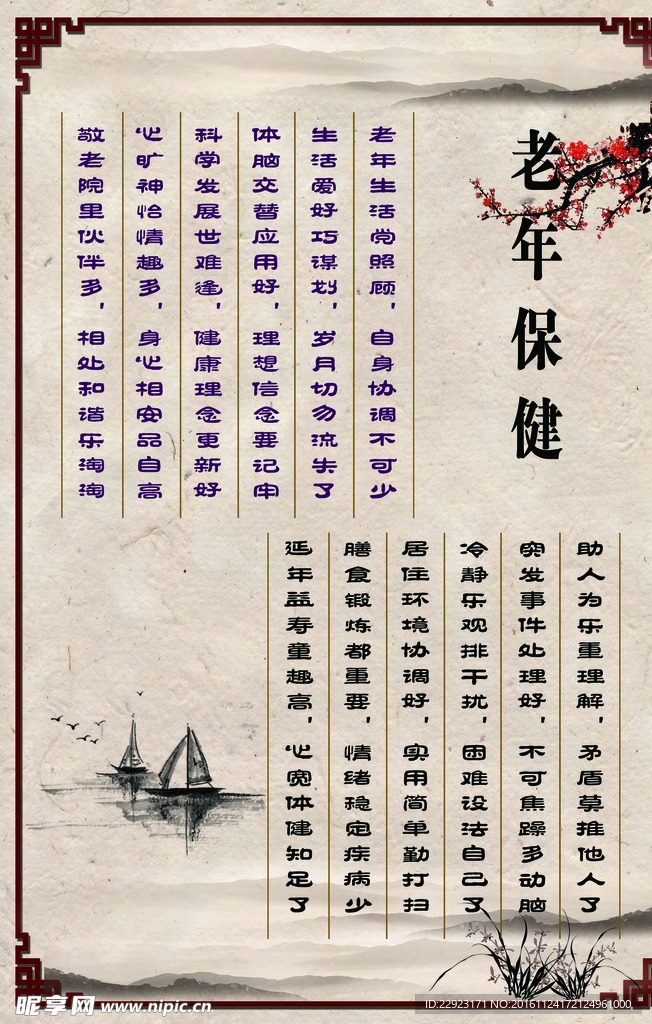 老年保健
老年生活党照顾，自身协调不可少
生活爱好巧谋划，岁月切勿流失了
体脑交替应用好，理想信念要记牢
科学发展世难逢，健康理念更新好
心旷神怡情趣多，身心相安品自高
敬老院里伙伴多，相处和谐乐淘淘
助人为乐重理解，矛盾莫推他人了
突发事件处理好，不可焦躁多动脑
冷静乐观排干扰，困难设法自己了
居住环境协调好，实用简单勤打扫
膳食锻炼都重要，情绪稳定疾病少
延年益寿童趣高，心宽体健知足了
昵享网 www.nipic.cn
ID:22923171 NO:20161124172124961000